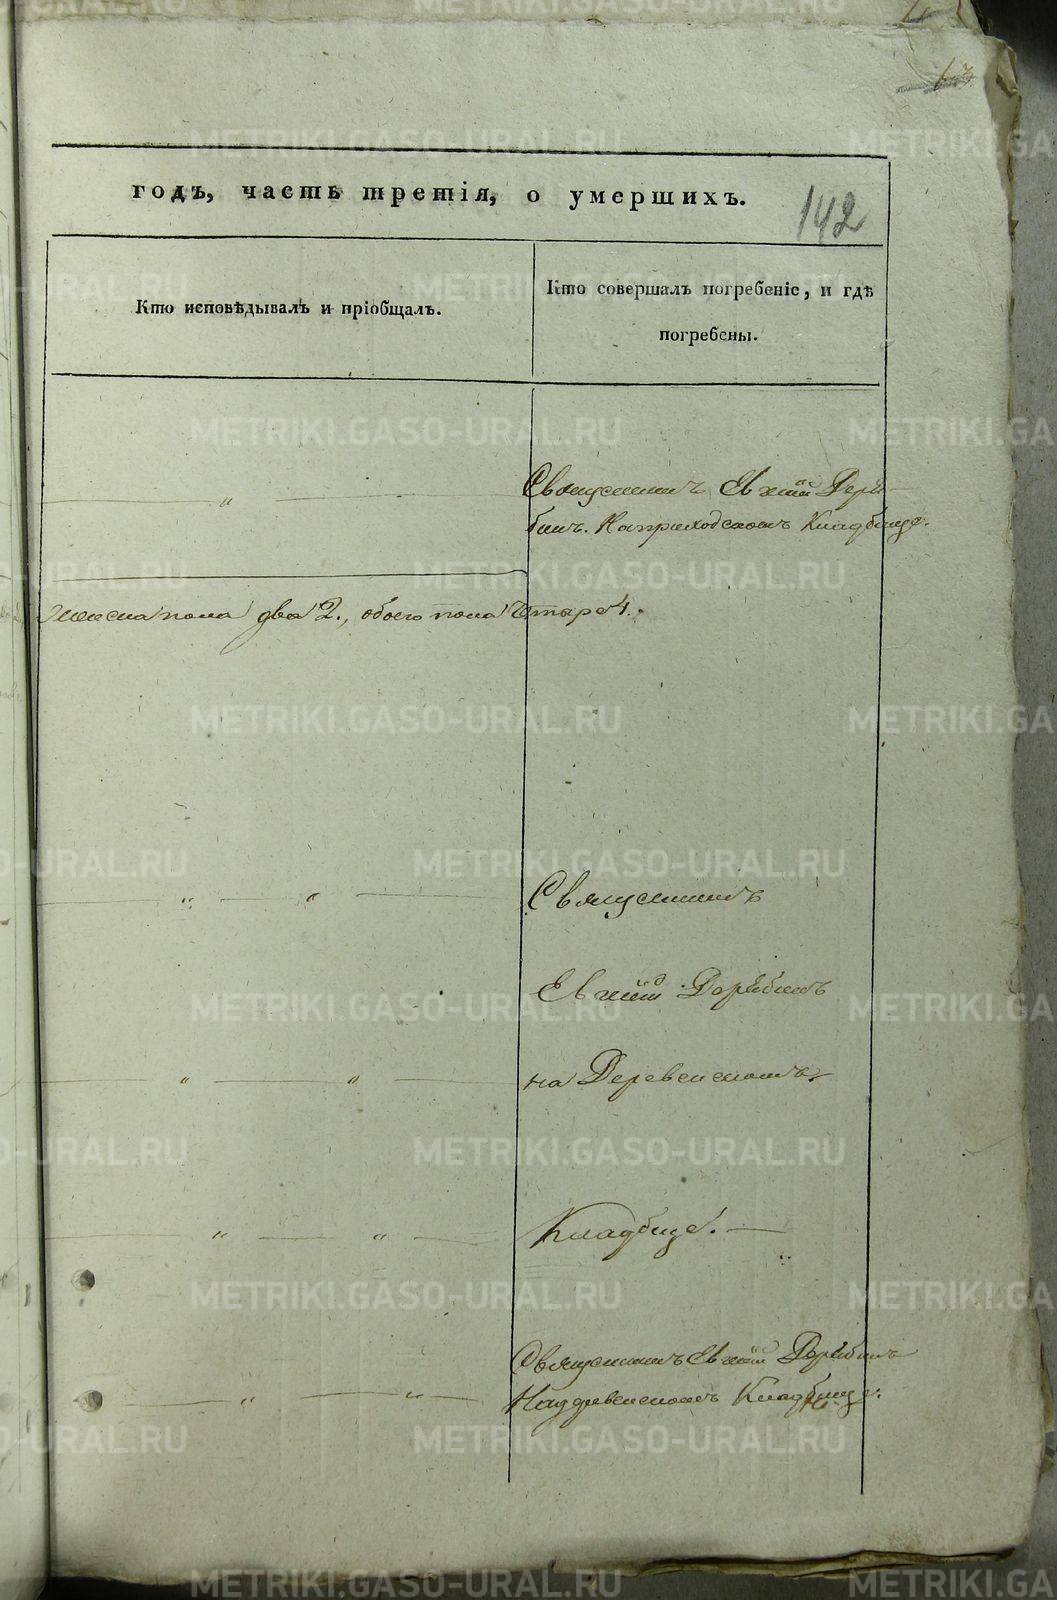 63
годъ, часть третія, о умершихъ.
142
Кто исповѣдывалъ и пріобщалъ.
Кто совершалъ погребеніе, и гдѣ
погребены.
Священникъ Евхній
бинъ. На приходскомъ Кладбище.
женска пола два 2., обоего пола Чтыре 4.
Священникъ
Дерябинъ
на Деревенскомъ
Кладбище.
Священникъ Дерябинъ
На деревенскомъ Кладбище.
METRIKI.GASO-URAL.RU